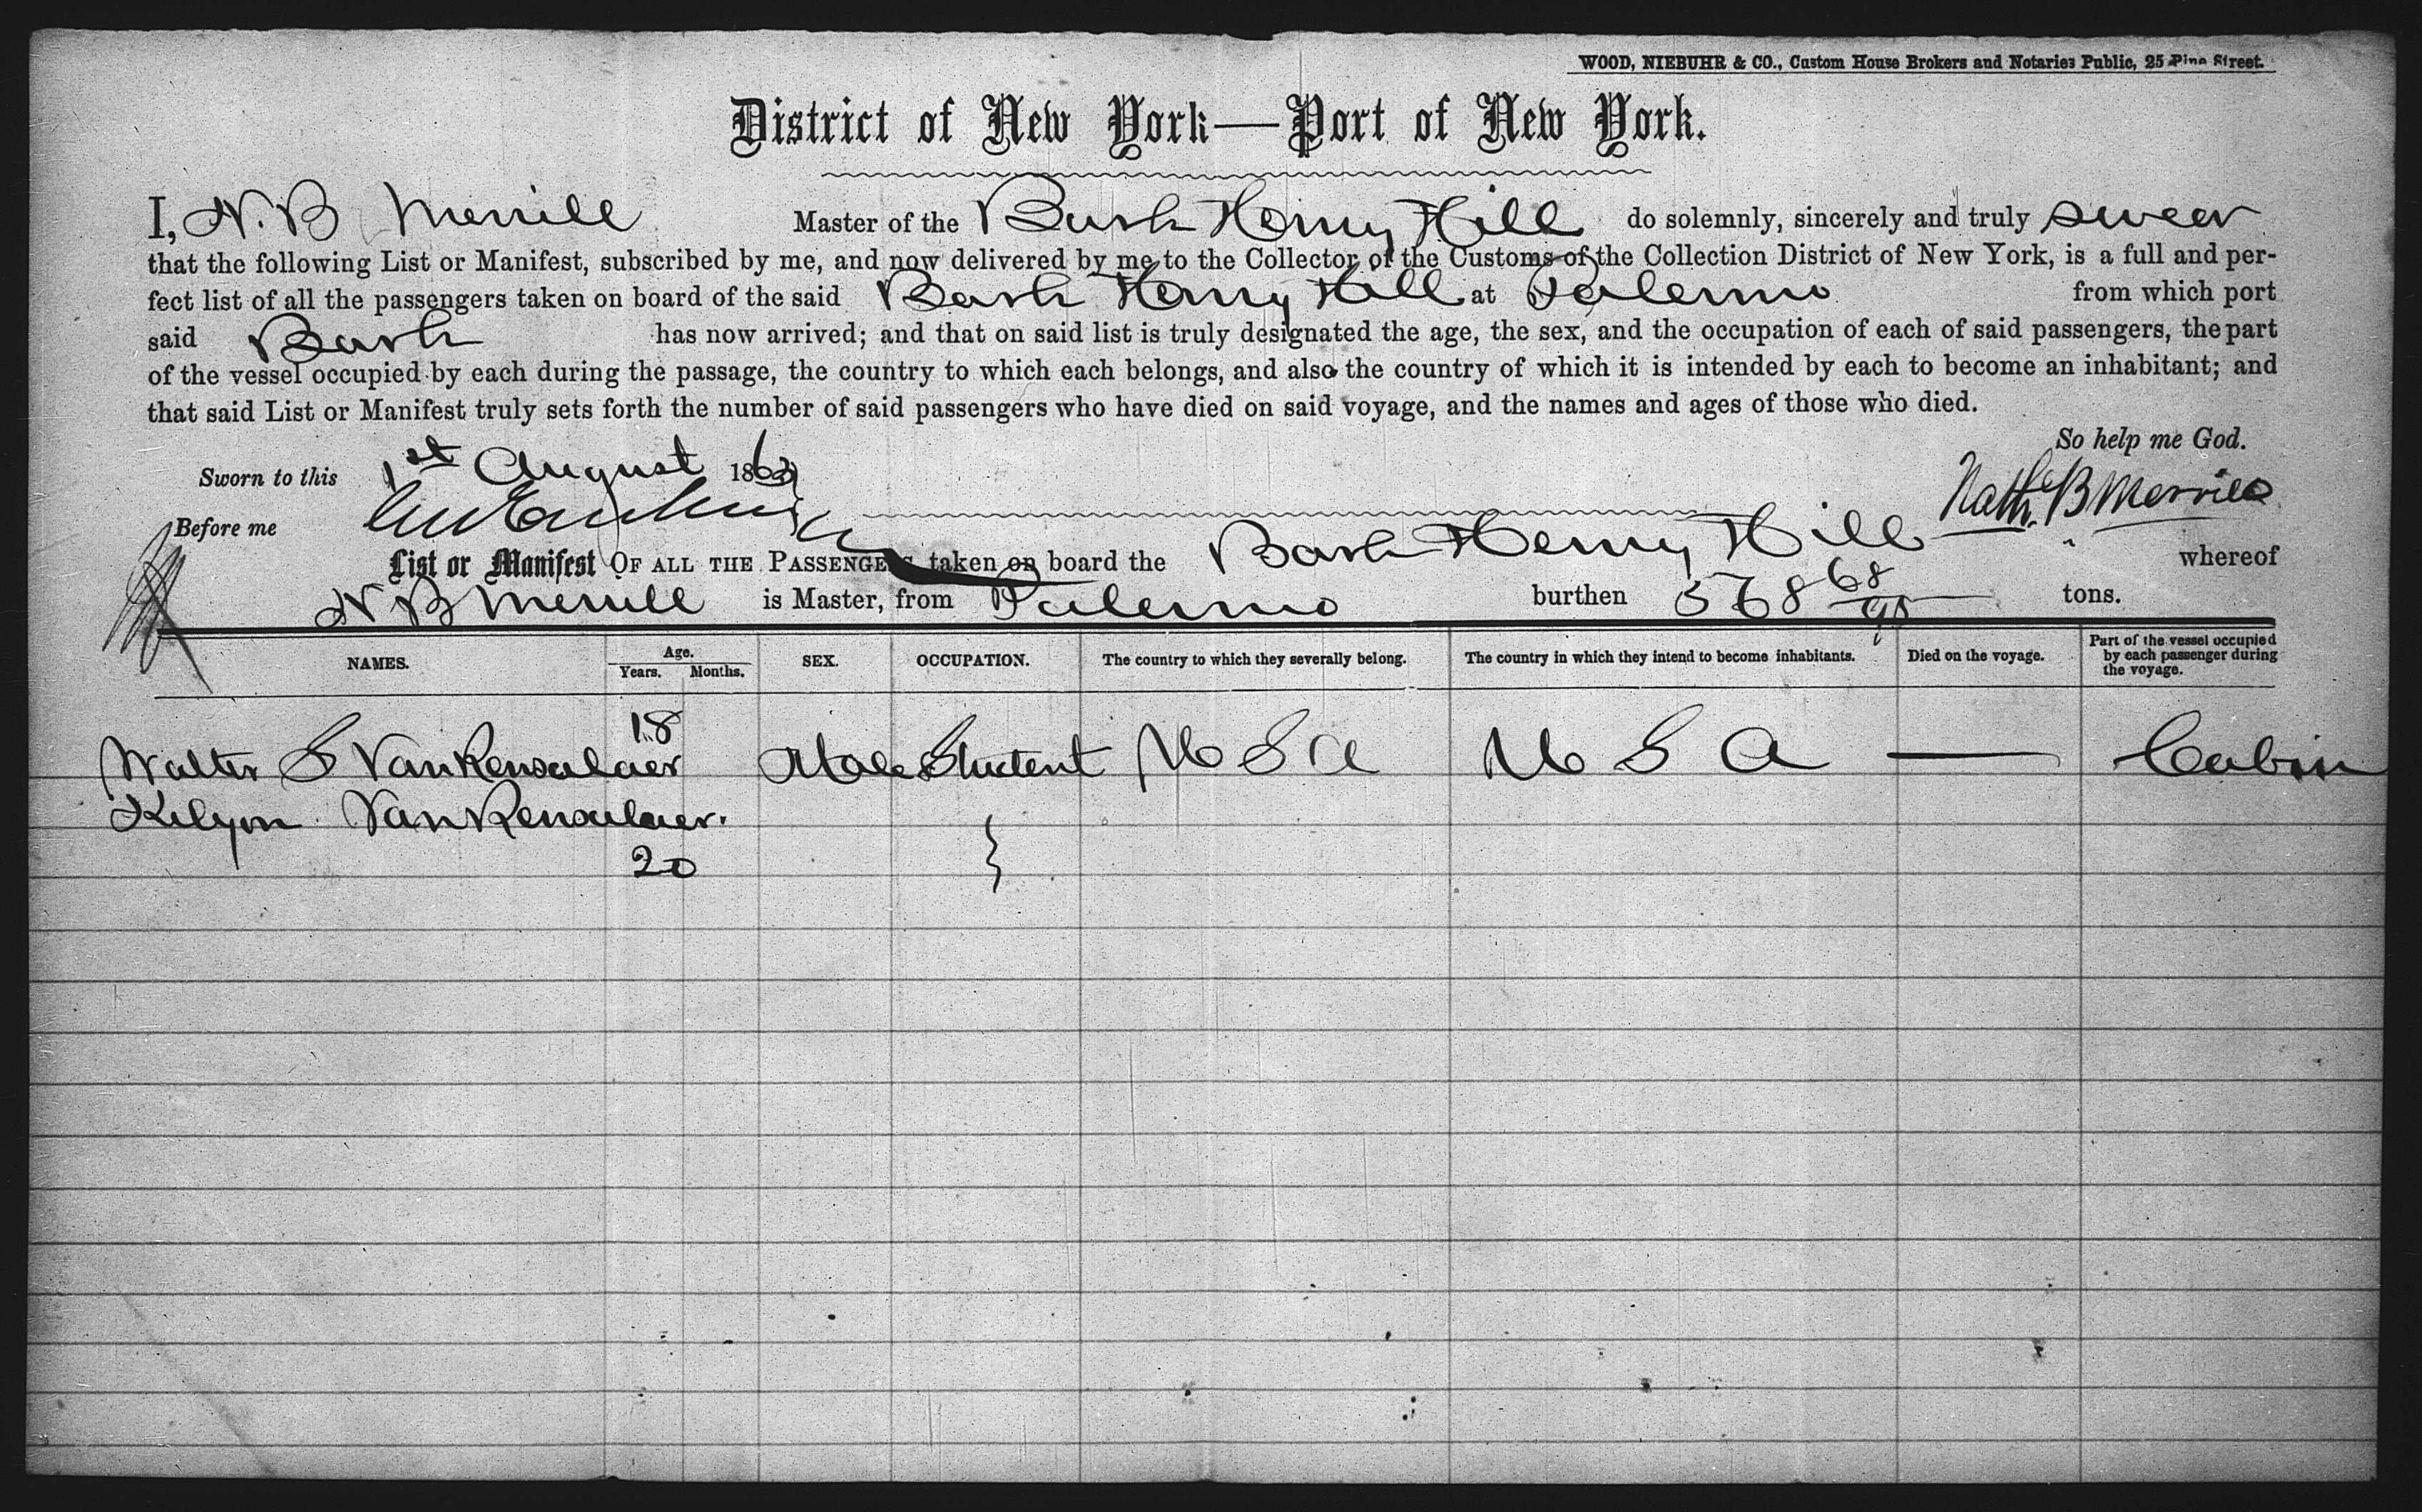 WOOD, NIEBUHR & CO., Custom House Brokers and Notaries Public, 25 Pine Street.
District of New York—Port of New York.
I, N. B Merrill Master of the Bark Henry Hill do solemnly, sincerely and truly swear
that the following List or Manifest, subscribed by me, and now delivered by me to the Collector of the Customs of the Collection District of New York, is a full and per-
fect list of all the passengers taken on board of the said Bark Henry Hill at Palermo from which port
said Bark has now arrived; and that on said list is truly designated the age, the sex, and the occupation of each of said passengers, the part
of the vessel occupied by each during the passage, the country to which each belongs, and also the country of which it is intended by each to become an inhabitant; and
that said List or Manifest truly sets forth the number of said passengers who have died on said voyage, and the names and ages of those who died.
So help me God.
Sworn to this 1st August 186
Before me
Nathl. B Merrill
List or Manifest OF ALL THE PASSENGERS taken on board the Bark Henry Hill whereof
N B Merrill is Master, from Palermo burthen 568 68/95 tons.
NAMES. Age. Years. Months. SEX. OCCUPATION. The country to which they severally belong. The country in which they intend to become inhabitants. Died on the voyage. Part of the vessel occupied by each passenger during the voyage.
Walter S VanRensalaer 18 Male Student U S A U S A — Cabin
Kilyon VanRensalaer. 20 }